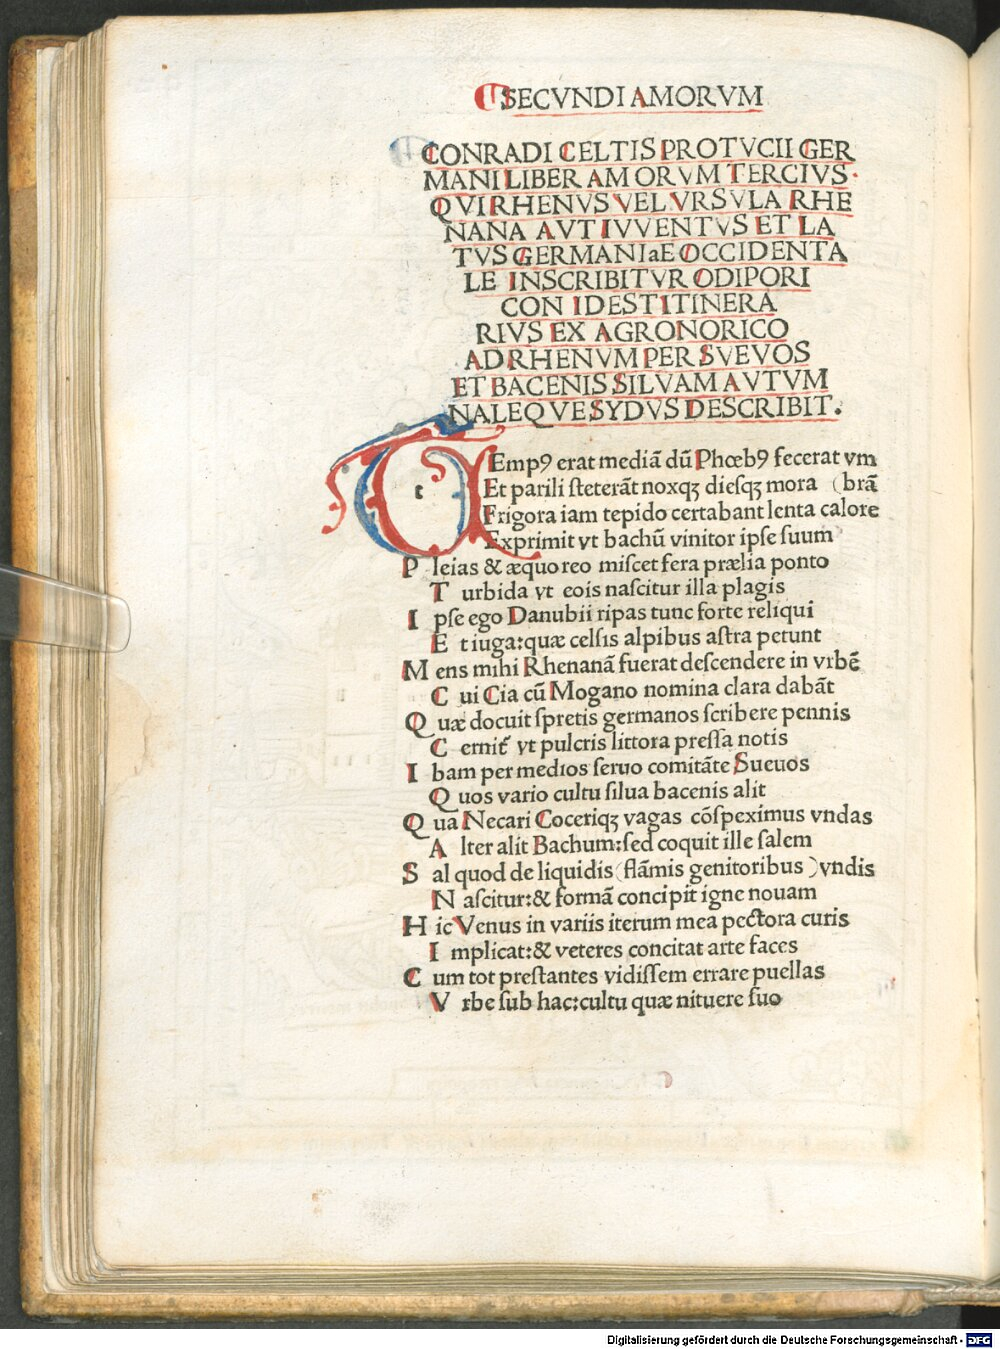 SECVNDI AMORVM
CONRADI CELTIS PROTVCII GER
MANI LIBER AMORVM TERCIVS.
QVI RHENVS VEL VRSVLA RHE
NANA AVT IVVENTVS ET LA
TVS GERMANIaE OCCIDENTA
LE INSCRIBITVR ODIPORI
CON IDEST ITINERA
RIVS EX AGRO NORICO
AD RHENVM PER SVEVOS
ET BACENIS SILVAM AVTVM
NALEQVE SYDVS DESCRIBIT.
TEmpꝯ erat mediã dũ Phœbꝯ fecerat vm
Et parili steterãt noxqꝫ diesqꝫ mora (brã
Frigora iam tepido certabant lenta calore
Exprimit vt bachũ vinitor ipse suum
P leias & æquoreo miscet fera prælia ponto
T urbida vt eois nascitur illa plagis
I pse ego Danubii ripas tunc forte reliqui
E t iuga: quæ celsis alpibus astra petunt
M ens mihi Rhenanã fuerat descendere in vrbẽ
C ui Cia cũ Mogano nomina clara dabãt
Q uæ docuit spretis germanos scribere pennis
C ernit̃ vt pulcris littora pressa notis
I bam per medios seruo comitãte Sueuos
Q uos vario cultu silua bacenis alit
Q ua Necari Coceriqꝫ vagas cõspeximus vndas
A lter alit Bachum: sed coquit ille salem
S al quod de liquidis (flãmis genitoribus) vndis
N ascitur: & formã concipit igne nouam
H ic Venus in variis iterum mea pectora curis
I mplicat: & veteres concitat arte faces
C um tot prestantes vidissem errare puellas
V rbe sub hac: cultu quæ nituere suo
Digitalisierung gefördert durch die Deutsche Forschungsgemeinschaft - DFG